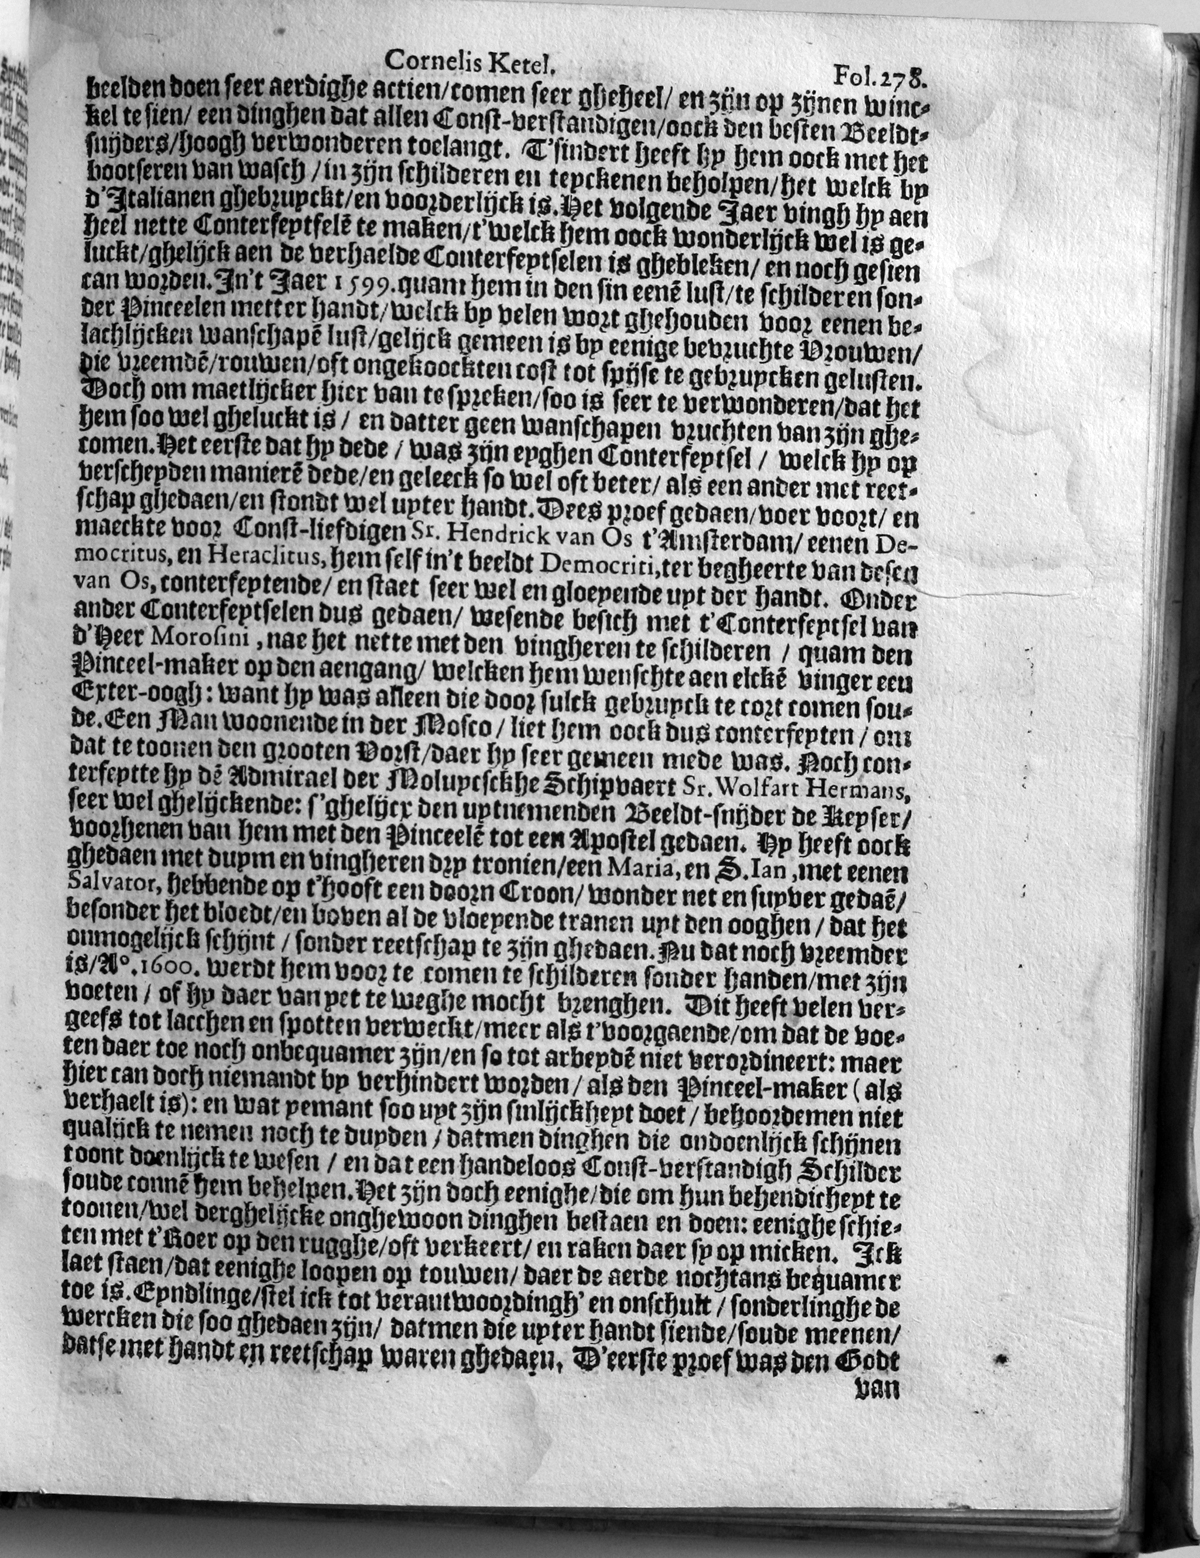 Cornelis Ketel.
Fol.278.
beelden doen seer aerdighe actien/comen seer gheheel/ en zijn op zijnen winc-
kel te sien/ een dinghen dat allen Const-verstandigen/oock den besten Beeldt-
snijders/hoogh verwonderen toelangt. T'sindert heeft hy hem oock met het
bootseren van wasch/in zijn schilderen en teyckenen beholpen/het welck by
d'Italianen ghebruyckt/en voorderlijck is. Het volgende Jaer vingh hy aen
heel nette Conterfeytselē te maken/t'welck hem oock wonderlijck wel is ge-
luckt/ghelijck aen de verhaelde Conterfeytselen is ghebleken/ en noch gesien
can worden. In't Jaer 1599. quam hem in den sin eenē lust/te schilderen son-
der Pinceelen metter handt/welck by velen wort ghehouden voor eenen be-
lachlijcken wanschapē lust/gelijck gemeen is by eenige bevruchte Vrouwen/
die vreemdē/rouwen/oft ongekoockten cost tot spijse te gebruycken gelusten.
Doch om maetlijcker hier van te spreken/soo is seer te verwonderen/dat het
hem soo wel gheluckt is/ en datter geen wanschapen vruchten van zijn ghe-
comen. Het eerste dat hy dede/ was zijn eyghen Conterfeytsel/ welck hy op
verscheyden manierē dede/en geleeck so wel oft beter/ als een ander met reet-
schap ghedaen/en stondt wel uyter handt. Dees proef gedaen/voer voort/ en
maeckte voor Const-liefdigen Sr. Hendrick van Os t'Amsterdam/ eenen De-
mocritus, en Heraclitus, hem self in't beeldt Democriti, ter begheerte van desen
van Os, conterfeytende/ en staet seer wel en gloeyende uyt der handt. Onder
ander Conterfeytselen dus gedaen/ wesende besich met t'Conterfeytsel van
d'Heer Morosini, nae het nette met den vingheren te schilderen/ quam den
Pinceel-maker op den aengang/ welcken hem wenschte aen elckē vinger een
Exter-oogh: want hy was alleen die door sulck gebruyck te cort comen sou-
de. Een Man woonende in der Mosco/ liet hem oock dus conterfeyten/ om
dat te toonen den grooten Vorst/daer hy seer gemeen mede was. Noch con-
terfeytte hy dē Admirael der Moluycsckhe Schipvaert Sr. Wolfart Hermans,
seer wel ghelijckende: s'ghelijcx den uytnemenden Beeldt-snijder de Keyser/
voorhenen van hem met den Pinceelē tot een Apostel gedaen. Hy heeft oock
ghedaen met duym en vingheren dry tronien/een Maria, en S. Ian, met eenen
Salvator, hebbende op t'hooft een doorn Croon/ wonder net en suyver gedaē/
besonder het bloedt/en boven al de vloeyende tranen uyt den ooghen/ dat het
onmogelijck schijnt/ sonder reetschap te zijn ghedaen. Nu dat noch vreemder
is/A°. 1600. werdt hem voor te comen te schilderen sonder handen/met zijn
voeten/ of hy daer van yet te weghe mocht brenghen. Dit heeft velen ver-
geefs tot lacchen en spotten verweckt/meer als t'voorgaende/om dat de voe-
ten daer toe noch onbequamer zijn/en so tot arbeydē niet verordineert: maer
hier can doch niemandt by verhindert worden/ als den Pinceel-maker (als
verhaelt is): en wat yemant soo uyt zijn sinlijckheyt doet/ behoordemen niet
qualijck te nemen noch te duyden/ datmen dinghen die ondoenlijck schijnen
toont doenlijck te wesen/ en dat een handeloos Const-verstandigh Schilder
soude connē hem behelpen. Het zijn doch eenighe/die om hun behendicheyt te
toonen/wel derghelijcke onghewoon dinghen bestaen en doen: eenighe schie-
ten met t'Roer op den rugghe/oft verkeert/ en raken daer sy op micken. Ick
laet staen/dat eenighe loopen op touwen/ daer de aerde nochtans bequamer
toe is. Eyndlinge/stel ick tot verantwoordingh' en onschult/ sonderlinghe de
wercken die soo ghedaen zijn/ datmen die uyter handt siende/soude meenen/
datse met handt en reetschap waren ghedaen. D'eerste proef was den Godt
van